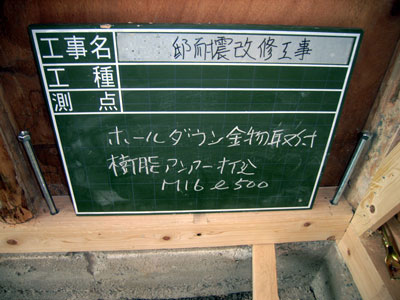 工事名 邸耐震改修工事
工種
測点
ホールダウン金物取付
樹脂アンカー打込
M16 ℓ500